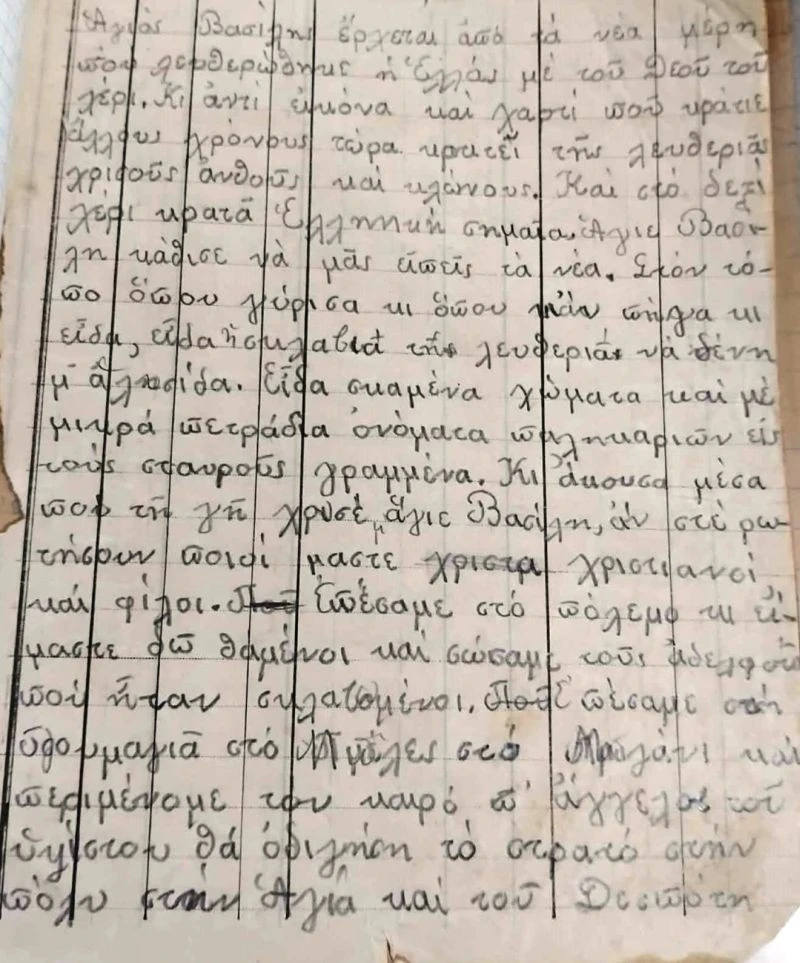 Ἅγιὸς Βασίλης ἔρχεται ἀπὸ τὰ νέα μέρη
ποὺ λευθερώθηκε ἡ Ἑλλάς μὲ τοῦ Θεοῦ τοῦ
χέρι. Κι ἀντὶ εἰκόνα καὶ χαρτί ποῦ κράτιε
ἄλλους χρόνους τώρα κρατεῖ τῆς λευθεριᾶς
χρισοῦς ἀνθοῦς καὶ κλώνους. Καὶ στό δεξί
χέρι κρατᾶ Ἑλληνική σημαῖα. Ἅγιε Βασί-
λη κάθισε νὰ μᾶς εἰπεῖς τὰ νέα. Στὸν τό-
πο ὅπου γύρισα κι ὅπου πῆγα κι
εἶδα, εἶδα ἡ σκλαβιά τῆς λευθεριᾶς νὰ δένη
μ' ἁλυσίδα. Εἶδα σκαμένα χώματα καὶ μὲ
μικρά πετράδια ὀνόματα παληκαριῶν εἰς
τοὺς σταυροῦς γραμμένα. Κι ἄκουσα μέσα
ποὺ τὴ γῆ χρυσέ μ ἅγιε Βασίλη, ἀν στὲ ρω-
τήσουν ποιοί μαστε χριστρ χριστιανοί
καὶ φίλοι. Ποῦ Ἐπέσαμε στὸ πόλεμο κι εἴ-
μαστε δῶ θαμένοι καὶ σώσαμε τοὺς ἀδελφοῦς
ποὺ ἦταν σκλαβομένοι. Ποῦ Ἐπέσαμε στὴ
στὸ στὸ καὶ
περιμένομε τον καιρό π' ἄγγελος τοῦ
ὑψίστου θά ὁδιγήση τὸ στρατὸ στὴν
πόλυ στὴν Ἁγιά καὶ τοῦ Δεσπότη